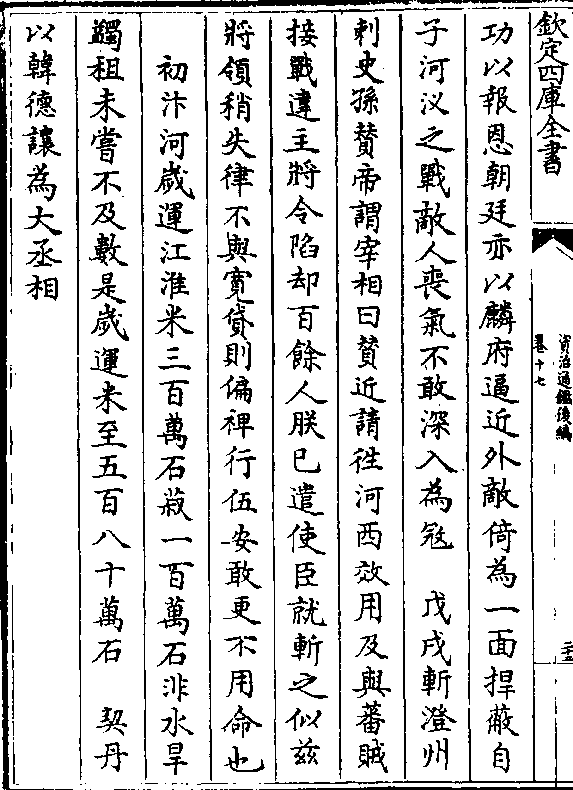 欽定四庫全書
資治通鑑後編
卷十七
二十五
功以報恩朝廷亦以麟府逼近外敵倚為一面捍蔽自
子河汊之戰敵人喪氣不敢深入為冦　戊戌斬澄州
刺史孫賛帝謂宰相曰賛近請徃河西效用及與蕃賊
接戰違主將令陷却百餘人朕已遣使臣就斬之似兹
將領稍失律不與寛貸則偏裨行伍安敢更不用命也
初汴河歲運江淮米三百萬石菽一百萬石非水旱
蠲租未嘗不及數是歲運米至五百八十萬石　契丹
以韓德讓為大丞相